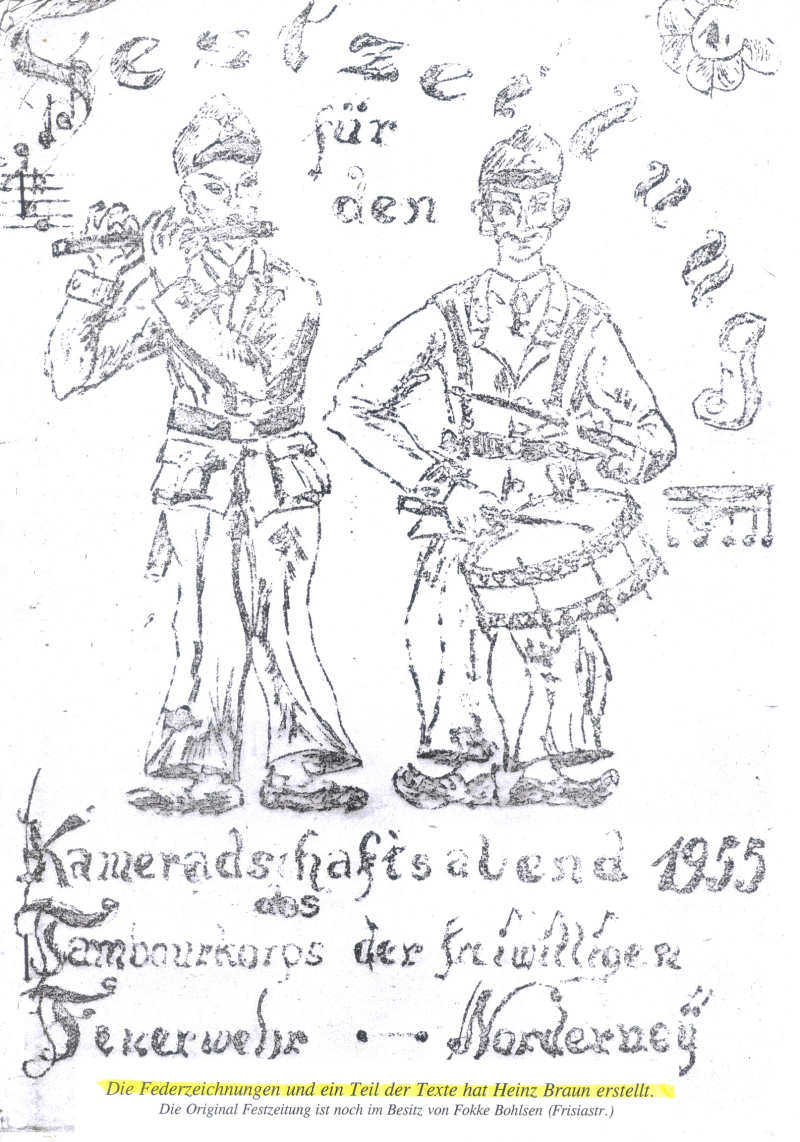 Festzeitung
für
den
Kameradschaftsabend 1955
des
Tambourkorps der freiwilligen
Feuerwehr •—• Norderneÿ
Die Federzeichnungen und ein Teil der Texte hat Heinz Braun erstellt.
Die Original Festzeitung ist noch im Besitz von Fokke Bohlsen (Frisiastr.)